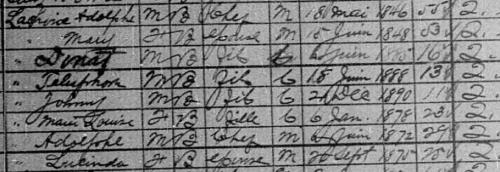 Adolphe M B Chef M 18 Mai 1846 55 2
" Mary F B épouse M 15 Juin 1848 53 2
" Donat M B Fils C Juin 16 2
" Telesphore M B Fils C 18 Juin 1888 13 2
" Johnny M B Fils C 21 Dec 1890 11 2
" Marie Louise F B Fille C 6 Jan 1878 23 2
" Adolphe M B Chef M Juin 1872 29 2
" Lucinda F B épouse M 20 Sept 1875 25 2